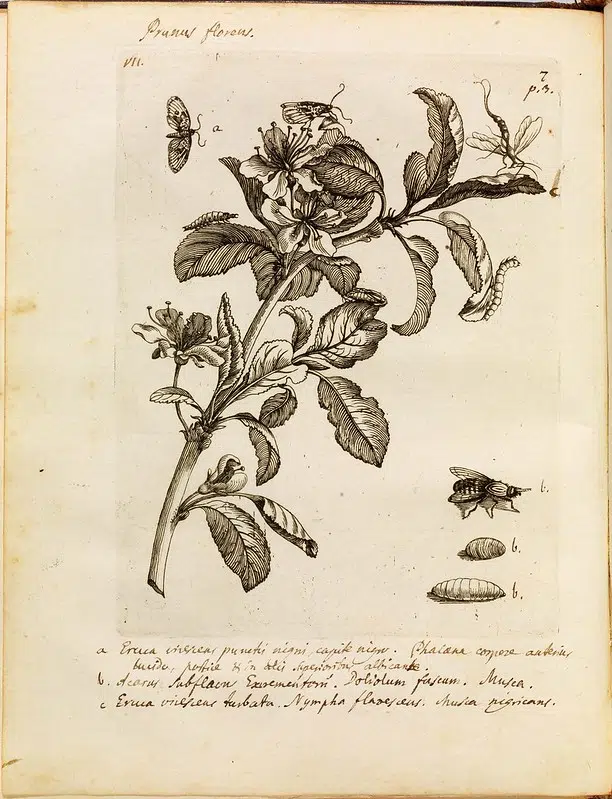 Prunus florens.
VII.
7
p. 3.
a
c
b.
b.
b.
a Eruca virescens punctis nigris, capite nigro. Phalæna corpore anterius
postice & in alis superioribus albicante.
b. Acarus Subflavus Excrementorũ. Doliolum fuscum. Musca.
c Eruca virescens turbata. Nympha flavescens. Musca nigricans.